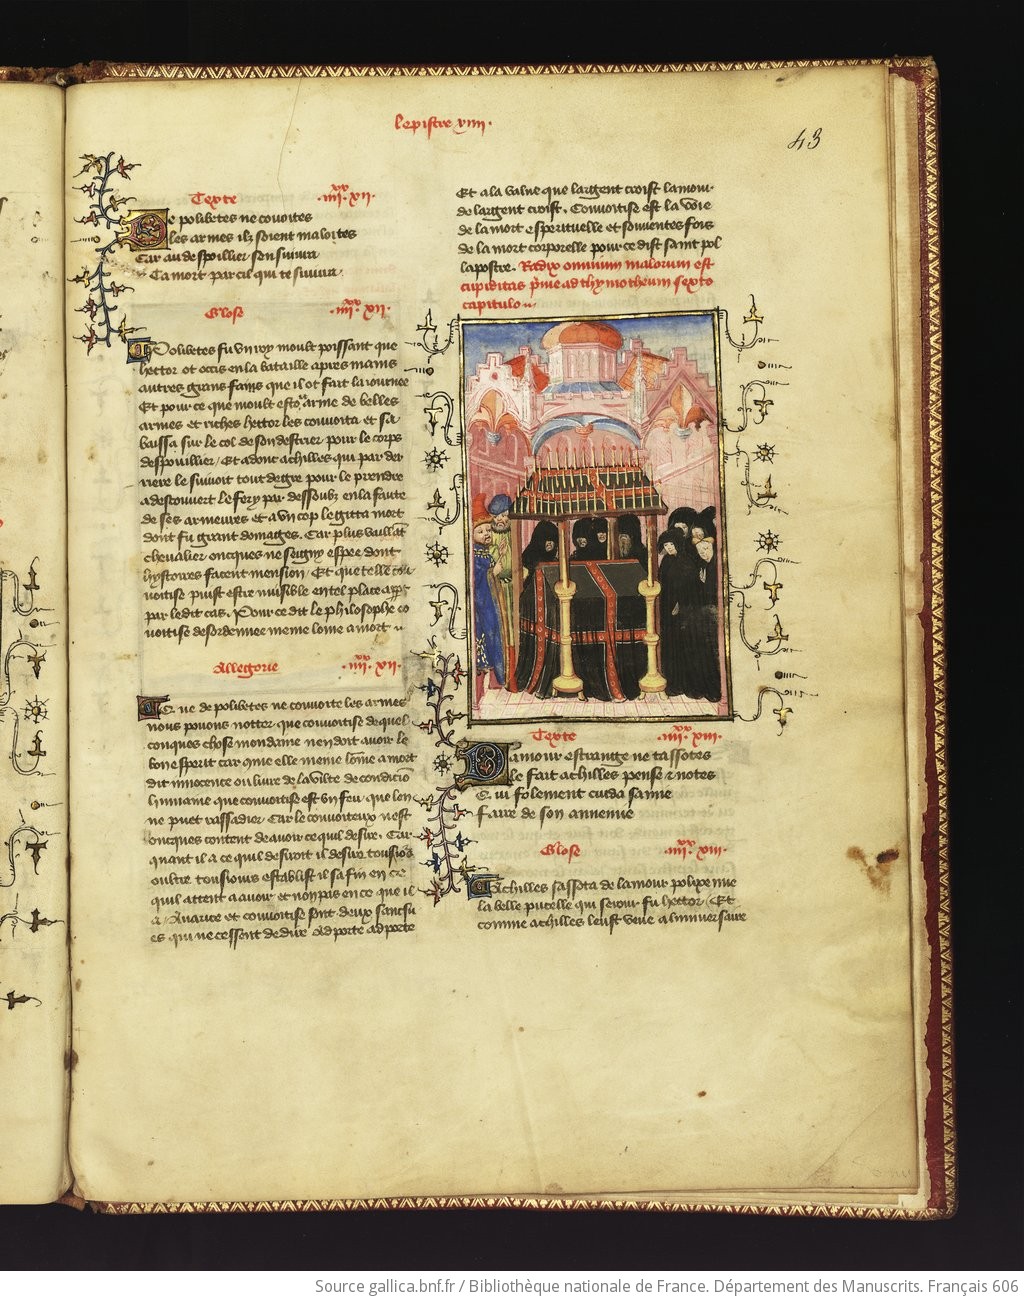 Lepistre xiiii.
43
Texte .iiii.xx xii.
De polibetes ne couoites
Les armes ilz soient maloites
Car au despoillier sensuiura
Ta mort par cil qui te suiura.
Glose .iiii.xx xii.
Polibetes fu vn roy moult poissant que
hector ot occis en la bataille apres mains
autres grans faiz que il ot fait la iournee
Et pour ce que moult estoit arme de belles
armes et riches hector les couoita et sa
baissa sur le col de son destrier pour le corps
despouillier / Et adont achilles qui par der
riere le suiuoit tout de gre pour le prendre
a descouuert le fery par dessoubz en la faute
de ses armeures et a vn cop le gitta mort
dont fu grant domages. Car plus vaillant
cheualier oncques ne seigny espee dont
hystoires facent mension / Et que telle cou
uoitise puist estre nuisible en tel place appert
par ledit cas. Pour ce dit le philosophe co
uoitise desordennee meine lome a mort
Allegorie .iiii.xx xii.
Que de polibetes ne couoite les armes
nous pouons notter que couuoitise de quel
conques chose mondaine ne doit auoir le
bon esperit car que elle meine lome a mort
dit innocence ou liure de la vilte de condicion
humaine que couuoitise est vn feu que len
ne puet rassadier Car le couuoiteux nest
oncques content de auoir ce quil desire. Car
quant il a ce quil desiroit il desire tousiours
oultre tousiours establist il sa fin en ce
quil attent a auoir et non pas en ce que il
a / Auarice et couuoitise sont deux sansu
es qui ne cessent de dire Ad porte ad porte
Et a la value que largent croist lamour
de largent croist. Couuoitise est la voie
de la mort esperituelle et souuentes fois
de la mort corporelle pour ce dist saint pol
lapostre. Radix omnium malorum est
cupiditas prime ad thymotheum sexto
capitulo
Texte .iiii.xx xiii.
Damour estrange ne tassotes
Le fait achilles pense et notes
Qui folement cuida sa mie
Faire de son annemie
Glose .iiii.xx xiii.
Achilles sassota de lamour polixenne
la belle pucelle qui serour fu hector / Et
comme achilles leust veue a lanniuersaire
Source gallica.bnf.fr / Bibliothèque nationale de France. Département des Manuscrits. Français 606